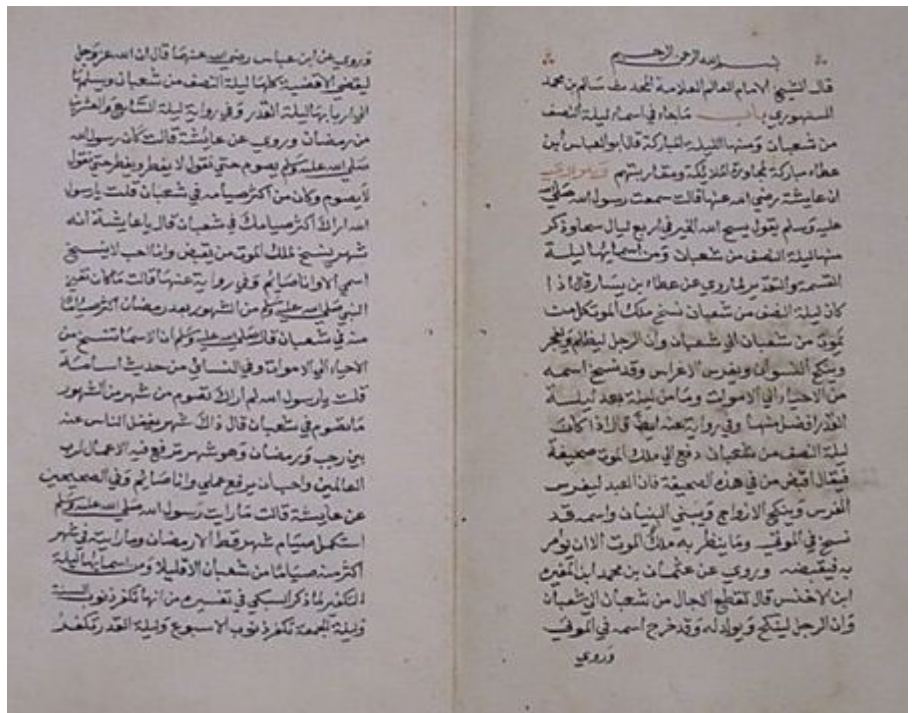 بسم الله الرحمن الرحيم
قال الشيخ الامام العالم العلامة المحدث سالم بن محمد
السنهوري باب ماجاء في اسماء ليلة النصف
من شعبان ومنها الليلة المباركة قال ابو العباس ابن
عطاء مباركة لمجاورة الملائكة ومقاربتهم
ان عايشة رضي الله عنها قالت سمعت رسول الله صلى
عليه وسلم يقول يسح الله الخير في اربع ليال سحا وذكر
منها ليلة النصف من شعبان ومن اسمايها ليلة
القسمة والتقدير لما روي عن عطاء بن يسار قال اذا
كان ليلة النصف من شعبان نسخ ملك الموت كل من
يموت من شعبان الي شعبان وان الرجل ليظلم ويفجر
وينكح النسوان ويغرس الاغراس وقد نسخ اسمه
من الاحياء الي الاموات وما من ليلة بعد ليلة
القدر افضل منها وفي رواية عنه ايضا قال اذا كانت
ليلة النصف من شعبان دفع الي ملك الموت صحيفة
فيقال اقبض من في هذه الصحيفة فان العبد ليغرس
الغرس وينكح الازواج ويبني البنيان واسمه قد
نسخ في الموتى وما ينظر به ملك الموت الا ان يؤمر
به فيقبضه وروي عن عثمان بن محمد ابن المغيرة
ابن الاخنس قال تقطع الاجال من شعبان الي شعبان
وان الرجل لينكح ويولد له وقد خرج اسمه في الموتى
وروي
وروي عن ابن عباس رضي الله عنهما قال ان الله عز وجل
ليقضي الاقضية كلها ليلة النصف من شعبان ويسلمها
الي اربابها ليلة القدر وفي رواية ليلة السابع والعشرين
من رمضان وروي عن عايشة قالت كان رسول الله
صلى الله عليه وسلم يصوم حتى نقول لا يفطر ويفطر حتى نقول
لا يصوم وكان من اكثر صيامه في شعبان قلت يا رسول
الله اراك اكثر صيامك في شعبان قال يا عايشة انه
شهر ينسخ لملك الموت من يقبض وانا احب لا ينسخ
اسمي الا وانا صايم وفي رواية عنها قالت ما كان
النبي صلى الله عليه وسلم من الشهور بعد رمضان اكثر صياما
منه في شعبان قال صلى الله عليه وسلم ان الاسما تنسخ من
الاحياء الي الاموات وفي النسائي من حديث اسامة
قلت يا رسول الله لم اراك تصوم من شهر من الشهور
ما تصوم في شعبان قال ذاك شهر يغفل الناس عنه
بين رجب ورمضان وهو شهر ترفع فيه الاعمال لرب
العالمين واحب ان يرفع عملي وانا صايم وفي الصحيحين
عن عايشة قالت ما رايت رسول الله صلى الله عليه وسلم
استكمل صيام شهر قط الا رمضان وما رايته في شهر
اكثر منه صياما من شعبان الا قليلا ومن اسمايها ليلة
التكفير لما ذكر السبكي في تفسيره من انها تكفر ذنوب السنة
وليلة الجمعة تكفر ذنوب الاسبوع وليلة القدر تكفر